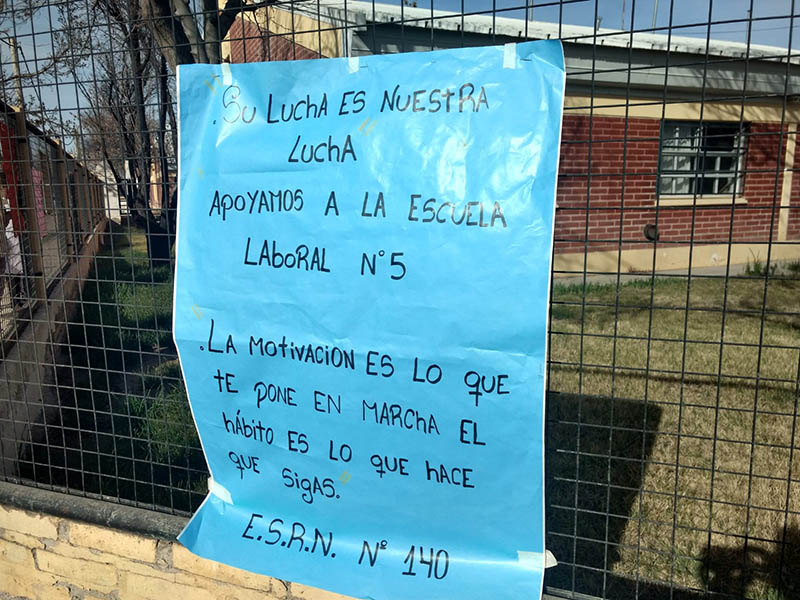 . Su Lucha es Nuestra
Lucha
Apoyamos a la Escuela
Laboral N° 5
. La motivacion es lo que
te pone en marcha el
hábito es lo que hace
que sigas.
E.S.R.N. N° 140